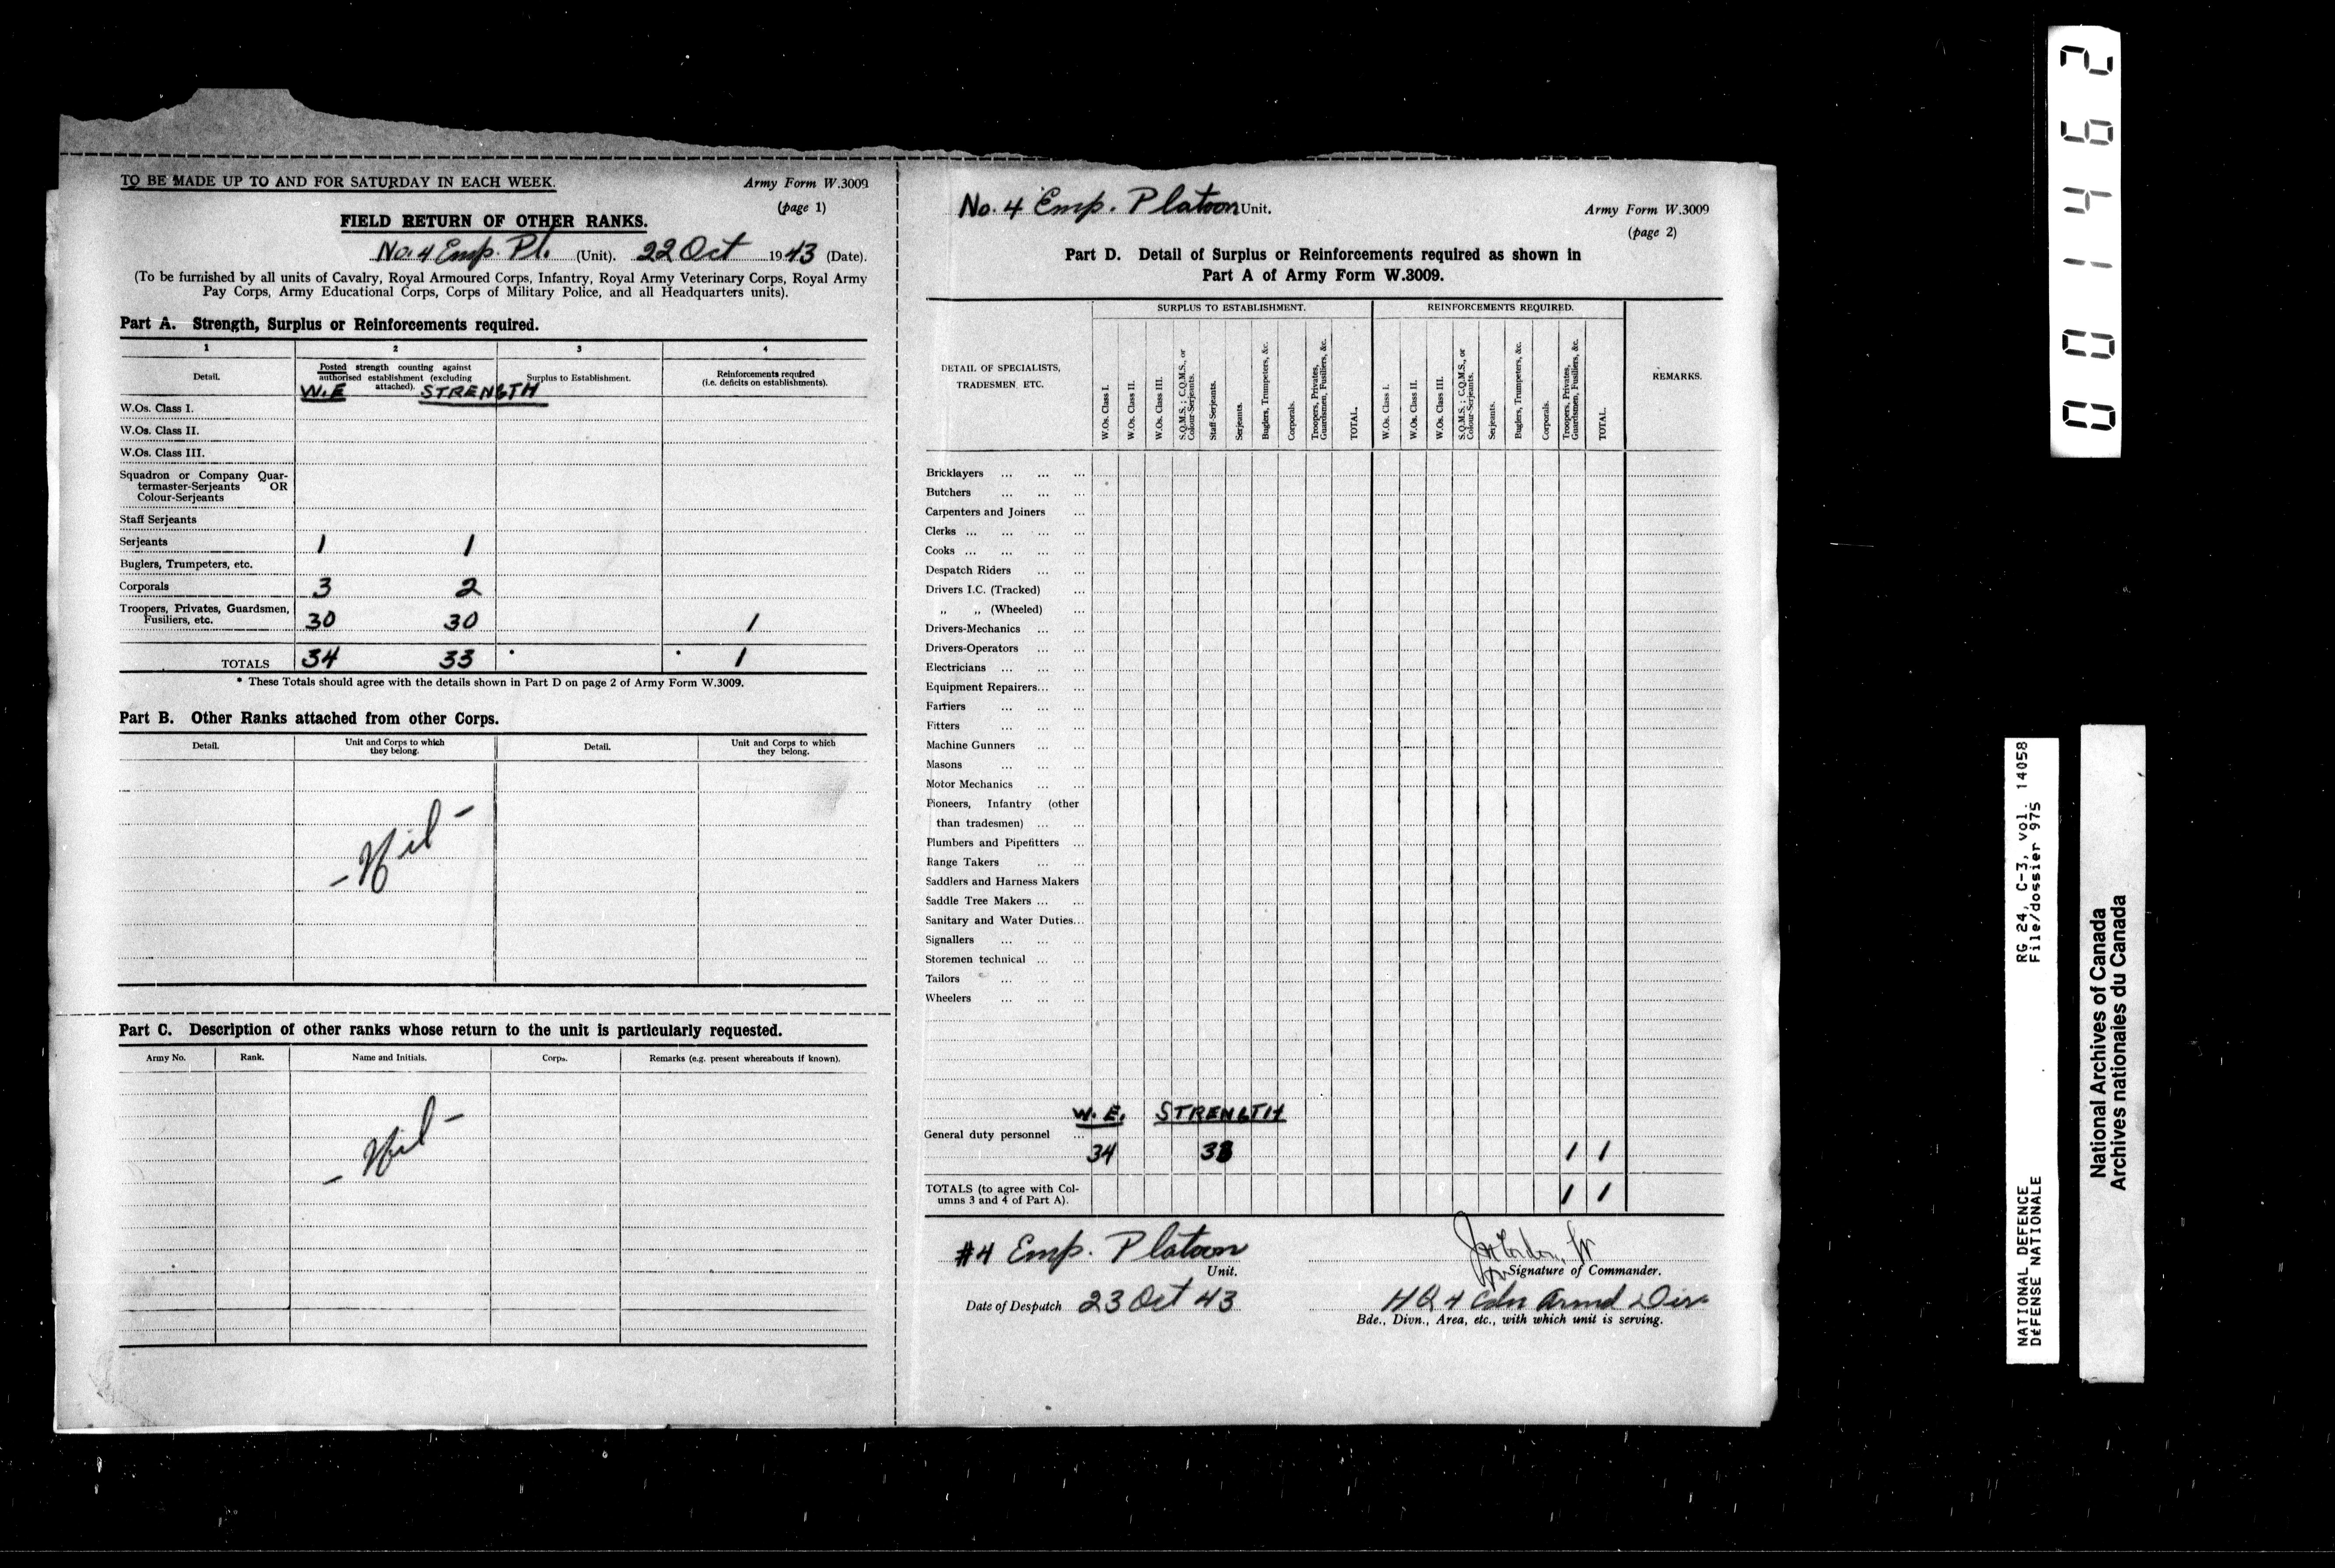 TO BE MADE UP TO AND FOR SATURDAY IN EACH WEEK.
Army Form W.3009
(page 1)
FIELD RETURN OF OTHER RANKS.
No. 4 Emp. Pl. (Unit). 22 Oct 1943 (Date).
(To be furnished by all units of Cavalry, Royal Armoured Corps, Infantry, Royal Army Veterinary Corps, Royal Army
Pay Corps, Army Educational Corps, Corps of Military Police, and all Headquarters units).
Part A. Strength, Surplus or Reinforcements required.
1 2 3 4
Detail.
Posted strength counting against
authorised establishment (excluding
attached).
Surplus to Establishment.
Reinforcements required
(i.e. deficits on establishments).
W.E STRENGTH
W.Os. Class I.
W.Os. Class II.
W.Os. Class III.
Squadron or Company Quar-
termaster-Serjeants OR
Colour-Serjeants
Staff Serjeants
Serjeants 1 1
Buglers, Trumpeters, etc.
Corporals 3 2
Troopers, Privates, Guardsmen,
Fusiliers, etc. 30 30 1
TOTALS 34 33 * * 1
* These Totals should agree with the details shown in Part D on page 2 of Army Form W.3009.
Part B. Other Ranks attached from other Corps.
Detail.
Unit and Corps to which
they belong.
Detail.
Unit and Corps to which
they belong.
- Nil -
Part C. Description of other ranks whose return to the unit is particularly requested.
Army No. Rank. Name and Initials. Corps. Remarks (e.g. present whereabouts if known).
- Nil -
No. 4 Emp. Platoon Unit.
Army Form W.3009
(page 2)
Part D. Detail of Surplus or Reinforcements required as shown in
Part A of Army Form W.3009.
DETAIL OF SPECIALISTS,
TRADESMEN ETC.
SURPLUS TO ESTABLISHMENT.
W.Os. Class I.
W.Os. Class II.
W.Os. Class III.
S.Q.M.S.; C.Q.M.S., or
Colour-Serjeants.
Staff-Serjeants.
Serjeants.
Buglers, Trumpeters, &c.
Corporals.
Troopers, Privates,
Guardsmen, Fusiliers, &c.
TOTAL.
REINFORCEMENTS REQUIRED.
W.Os. Class I.
W.Os. Class II.
W.Os. Class III.
S.Q.M.S.; C.Q.M.S., or
Colour-Serjeants.
Serjeants.
Buglers, Trumpeters, &c.
Corporals.
Troopers, Privates,
Guardsmen, Fusiliers, &c.
TOTAL.
REMARKS.
Bricklayers ... ... ...
Butchers ... ... ...
Carpenters and Joiners ...
Clerks ... ... ... ...
Cooks ... ... ... ...
Despatch Riders ... ...
Drivers I.C. (Tracked) ...
„ „ (Wheeled) ...
Drivers-Mechanics ... ...
Drivers-Operators ... ...
Electricians ... ... ...
Equipment Repairers... ...
Farriers ... ... ...
Fitters ... ... ...
Machine Gunners ... ...
Masons ... ... ...
Motor Mechanics ... ...
Pioneers, Infantry (other
than tradesmen) ... ...
Plumbers and Pipefitters ...
Range Takers ... ...
Saddlers and Harness Makers
Saddle Tree Makers ... ...
Sanitary and Water Duties...
Signallers ... ... ...
Storemen technical ... ...
Tailors ... ... ...
Wheelers ... ... ...
W.E. STRENGTH
General duty personnel ...
34 33 1 1
TOTALS (to agree with Col-
umns 3 and 4 of Part A). 1 1
#4 Emp. Platoon
Unit.
Signature of Commander.
Date of Despatch 23 Oct 43
HQ 4 Cdn Armd Div
Bde., Divn., Area, etc., with which unit is serving.
001462
RG 24, C-3, vol. 14058
File/dossier 975
NATIONAL DEFENCE
DÉFENSE NATIONALE
National Archives of Canada
Archives nationales du Canada